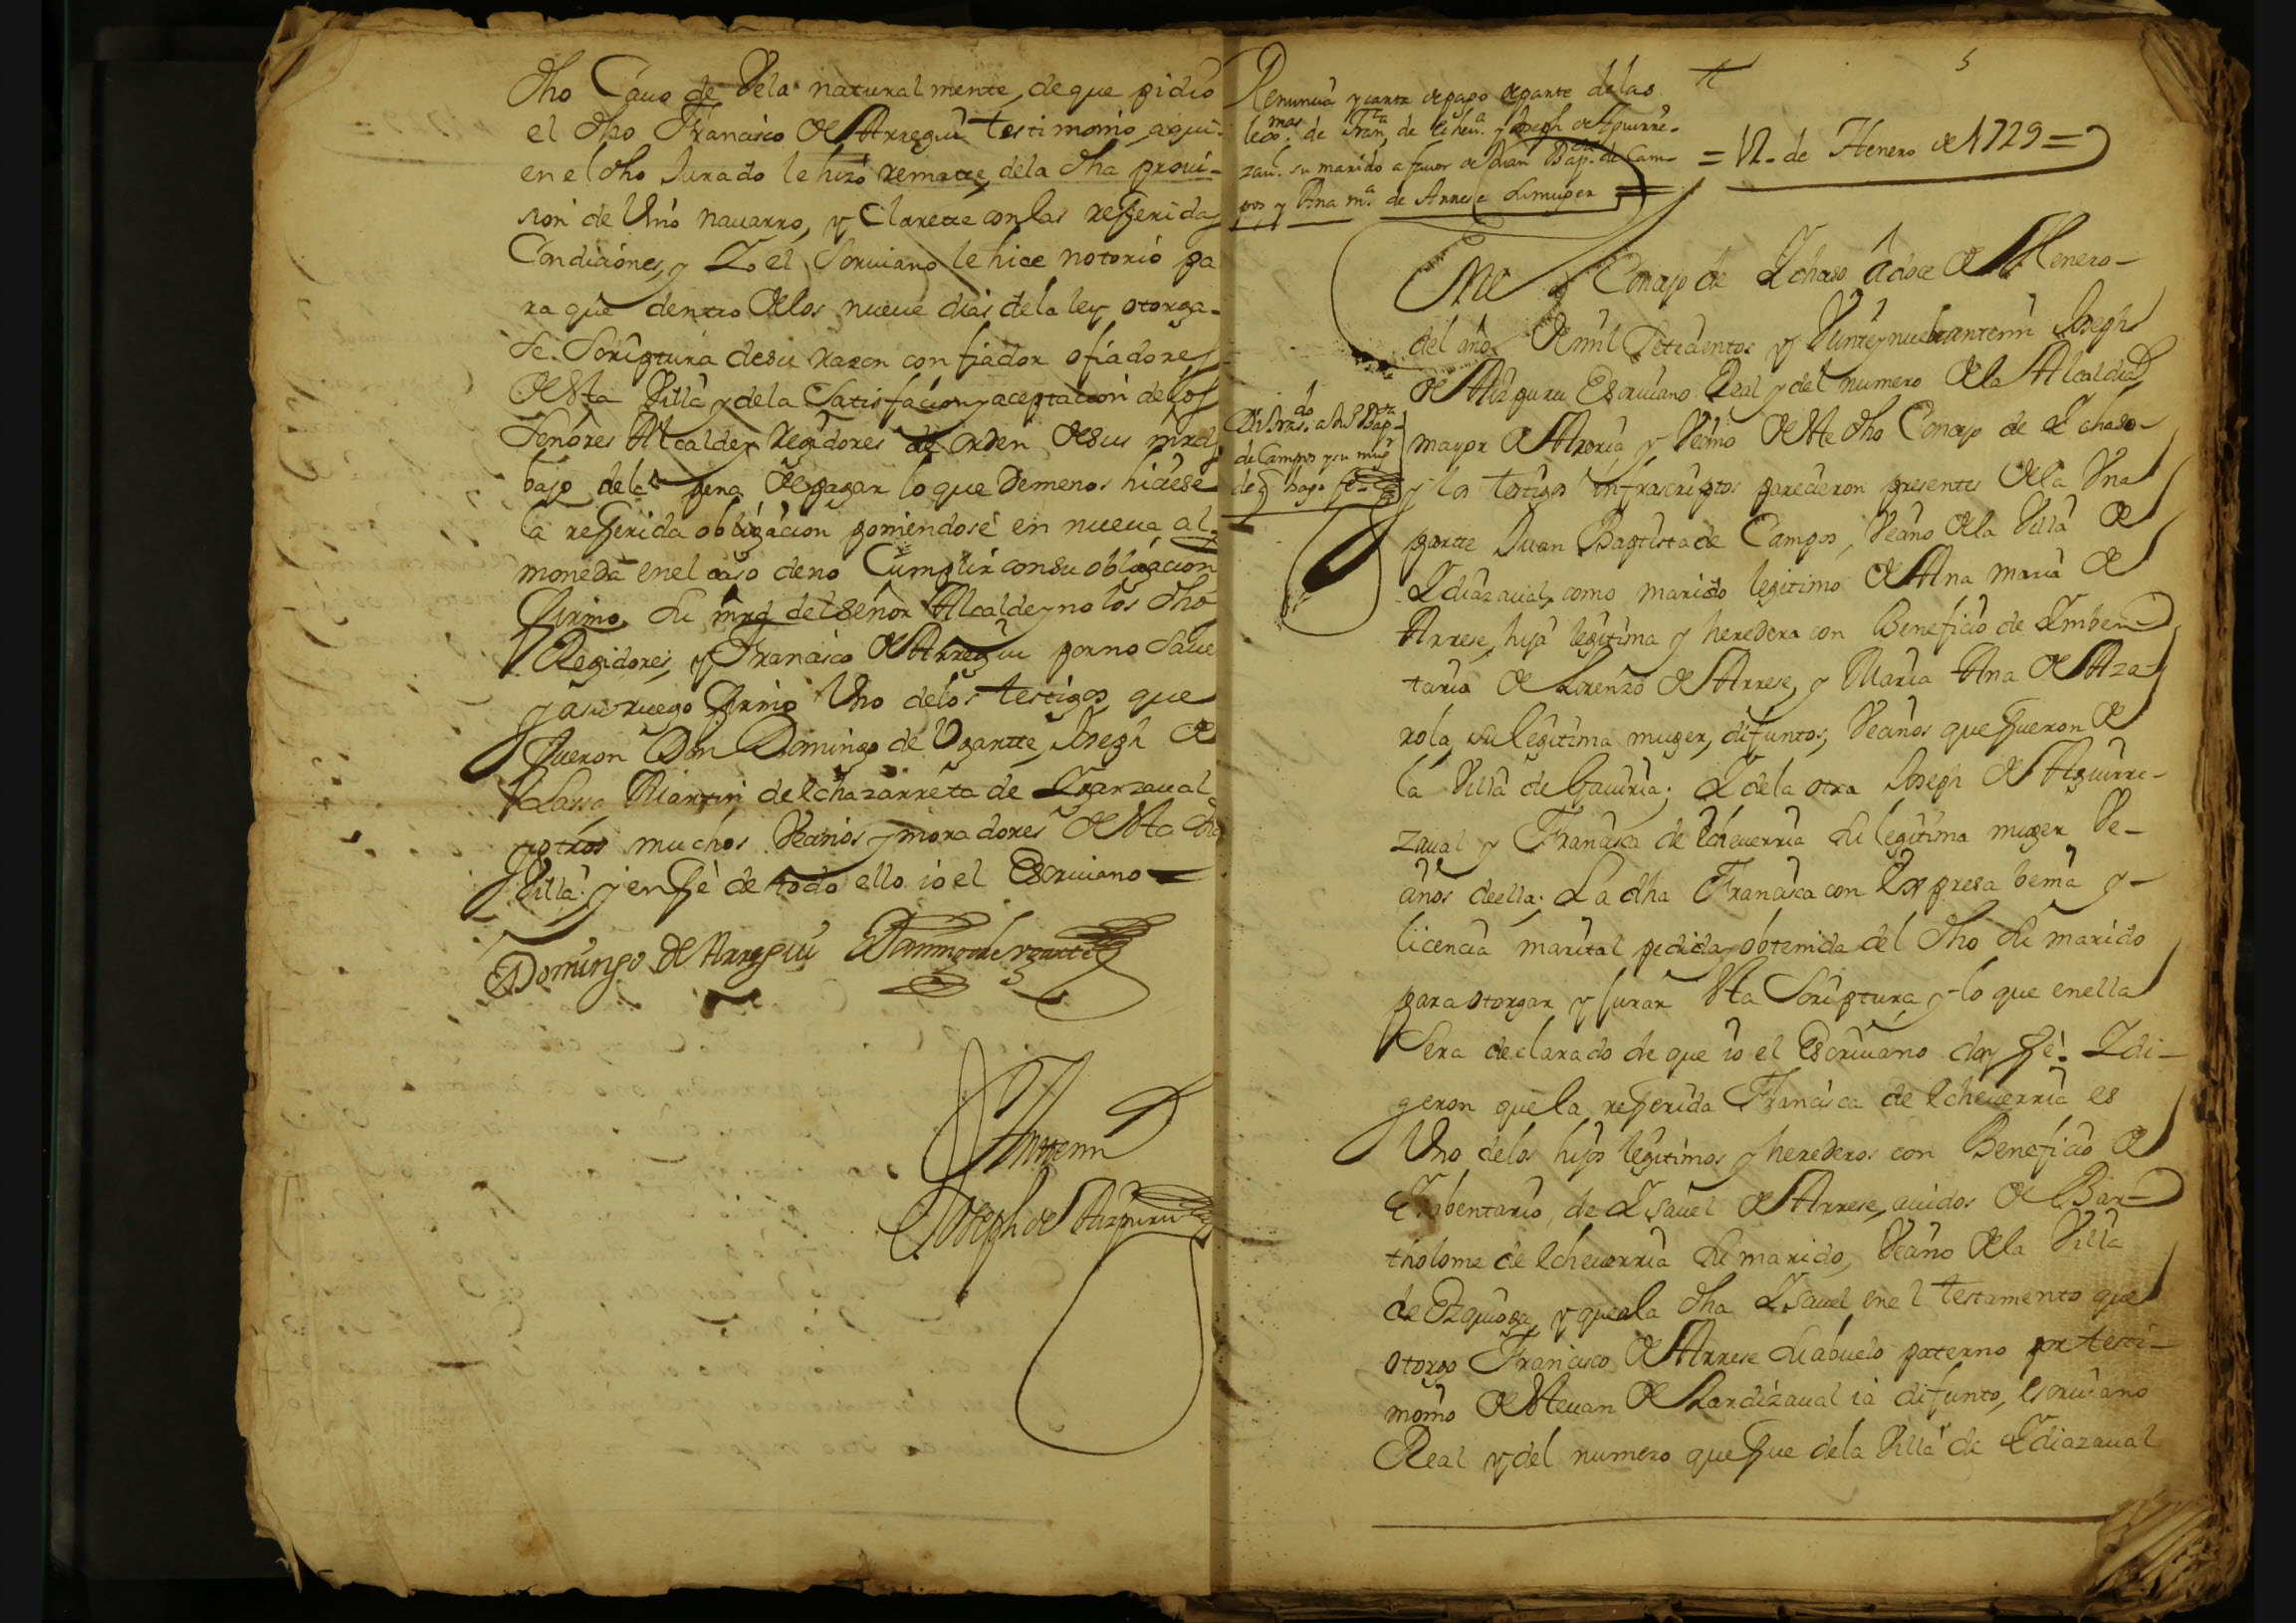 dho Cauo de Vela naturalmente, de que pidio
el dho Francisco de Arregui testimonio, aqui
en el dho Jurado le hizo remate, dela dha proui-
sion de Vino nauarro, y Clarette con las referidas
Condiciones, y Yo el Scriuano le hice notorio pa
ra que dentro delos nueue dias dela ley otorga-
se Scriptura desu razon con fiador o fiadores
de esta Villa y dela Satisfacion y aceptacion delos
Señores Alcalde y Regidores de orden de sus mrds
bajo dela pena de pagar lo que de menos hiciese
la referida obligacion poniendose en nueua al
moneda en el caso de no Cumplir con su obligacion
Firmo su mrd del señor Alcalde y no los dhos
Regidores, y Francisco de Arregui por no saue
y a su ruego firmo Uno delos testigos, que
fueron Don Domingo de Ugartte, Joseph de
Lassa Martin de Echazarreta de Ygarzaual
y otros muchos Vecinos y moradores de esta dha
Villa: y en fè de todo ello io el Escriuano
Domingo de Arregui Domingo de Vgarte
Antemi
Joseph de Aizpuru
Renuncia y carta de pago de parte delas
lexmas. de Franca. de Echeua. y Joseph de Aguirre-
zaul. su marido a fauor de Juan Bapta. de Cam-
pos y Ana ma. de Arrese su muger
5
= 12. de Henero de 1729 =
En el Concejo de Ychaso, à doce de Henero-
del año de mil Setecientos y Veinte y nueue antemi Joseph
de Aizpuru Escriuano Real y del numero dela Alcaldia
mayor de Areria, y Vecino de este dho Concejo de Ychaso-
y los testigos infrascriptos parecieron presentes dela Una
partte Juan Baptista de Campos, Vecino dela Villa de
Ydiazaual, como marido legitimo de Ana maria de
Arrese, hija legitima y heredera con Beneficio de Ymben
tario de Lorenzo de Arrese, y Maria Ana de Aza-
rola, su legitima muger, difuntos, Vecinos que fueron de
la Villa de Gauiria; Y dela otra Joseph de Aguirre-
zaual y Francisca de Echeuerria su legitima muger Ve-
cinos de ella: La dha Francisca con Expresa venia y-
licencia marital pedida y obtenida del dho su marido
para otorgar y jurar esta Scriptura y lo que en ella
Sera declarado de que io el Escriuano doy fè: Ydi-
geron que la referida Francisca de Echeuerria es
Uno delos hijos legitimos y herederos con Beneficio de
Ymbentario, de Ysauel de Arrese, auidos de Bar-
tholome de Echeuerria su marido, Vecino dela Villa
de Ezquioga, y que ala dha Ysauel en el testamento que
otorgo Francisco de Arrese su abuelo paterno por testi-
monio de Esteuan de Lardizaual ia difunto, escriuano
Real y del numero que fue dela Villa de Ydiazaual
Di tras.do a Ju Bapta
de Campos y su mugr
de q hago fe